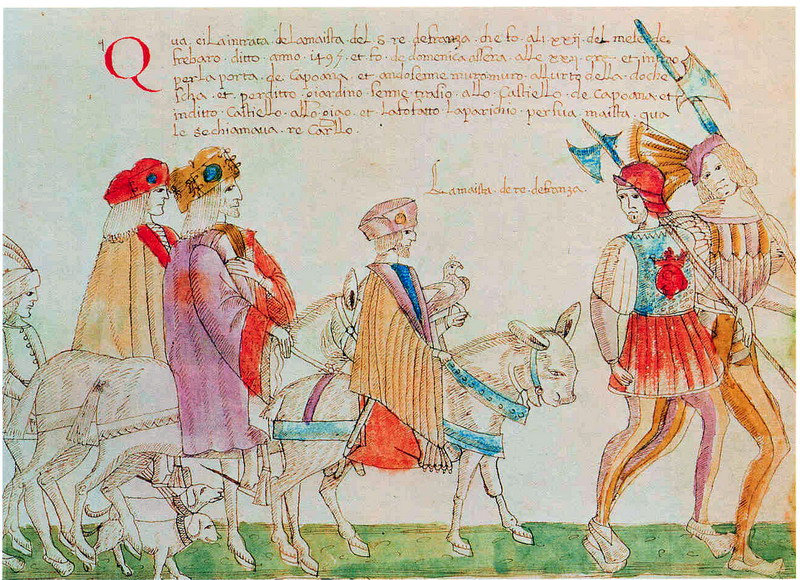 Qua, ei Laintrata de Lamaista, del S. re defranza. che fo. ali. xxii. del mese de
frebaro. ditto. anno. 1495. et fo. de domenica assera. alle xxii. ore. et intro
per la porta. de Capoana. et andosenne muro muro. all urto della doche
scha. et. per ditto giardino senne trasio. allo. Castiello. de Capoana. et
in ditto. Castiello. allogiao. et Lafo fatto Laparichio. per sua. maista. qua
le se chiamava. re Carllo.
La maista. de re. defranza.